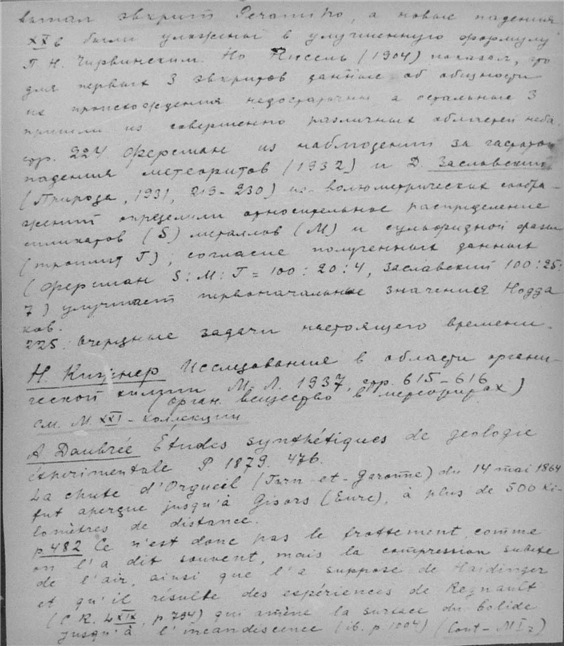 эвкрит Peramiho, а новые падения
XX в были уложены в улучшенную формулу
П. Н. Чирвинским. Но Нисель (1904) показал, что
для первых 3 эвкритов данные об общности
их происхождения недостаточны а остальные 3
пришли из совершенно различных областей неба.
стр. 224 Ферсман из наблюдений за
падения метеоритов (1932) и Д. Заславский
(Природа, 1931, 219-230) из волюметрических сообра-
жений определили относительное распределение
силикатов (S) металлов (M) и сульфидной фазы
(троилит T); согласие полученных данных
(Ферсман S : M : T = 100 : 20 : 4, Заславский 100 : 25 :
7) улучшает первоначальные значения Нодда
ков.
225. Очередные задачи настоящего времени.
Н. Кижнер Исследования в области органи-
ческой химии М. Л. 1937, стр. 615-616
(орган. вещество в метеоритах)
см. М XXI - коллекции
A Daubrée Etudes synthétiques de geologie
éxperimentale P 1879. 476.
La chute d'Orgueil (Tarn-et-Garonne) du 14 mai 1864
fut aperçue jusqu'à Gisors (Eure), à plus de 500 ki-
lomètres de distance.
p 482 Ce n'est donc pas le frottement, comme
on l'a dit souvent, mais la compression subite
de l'air, ainsi que l'a supposé de Haidinger
et qu'il résulte des expériences de Regnault
(C. R. p. 794) qui amène la surface du bolide
jusqu'à l'incandescence (ib. p 1004)